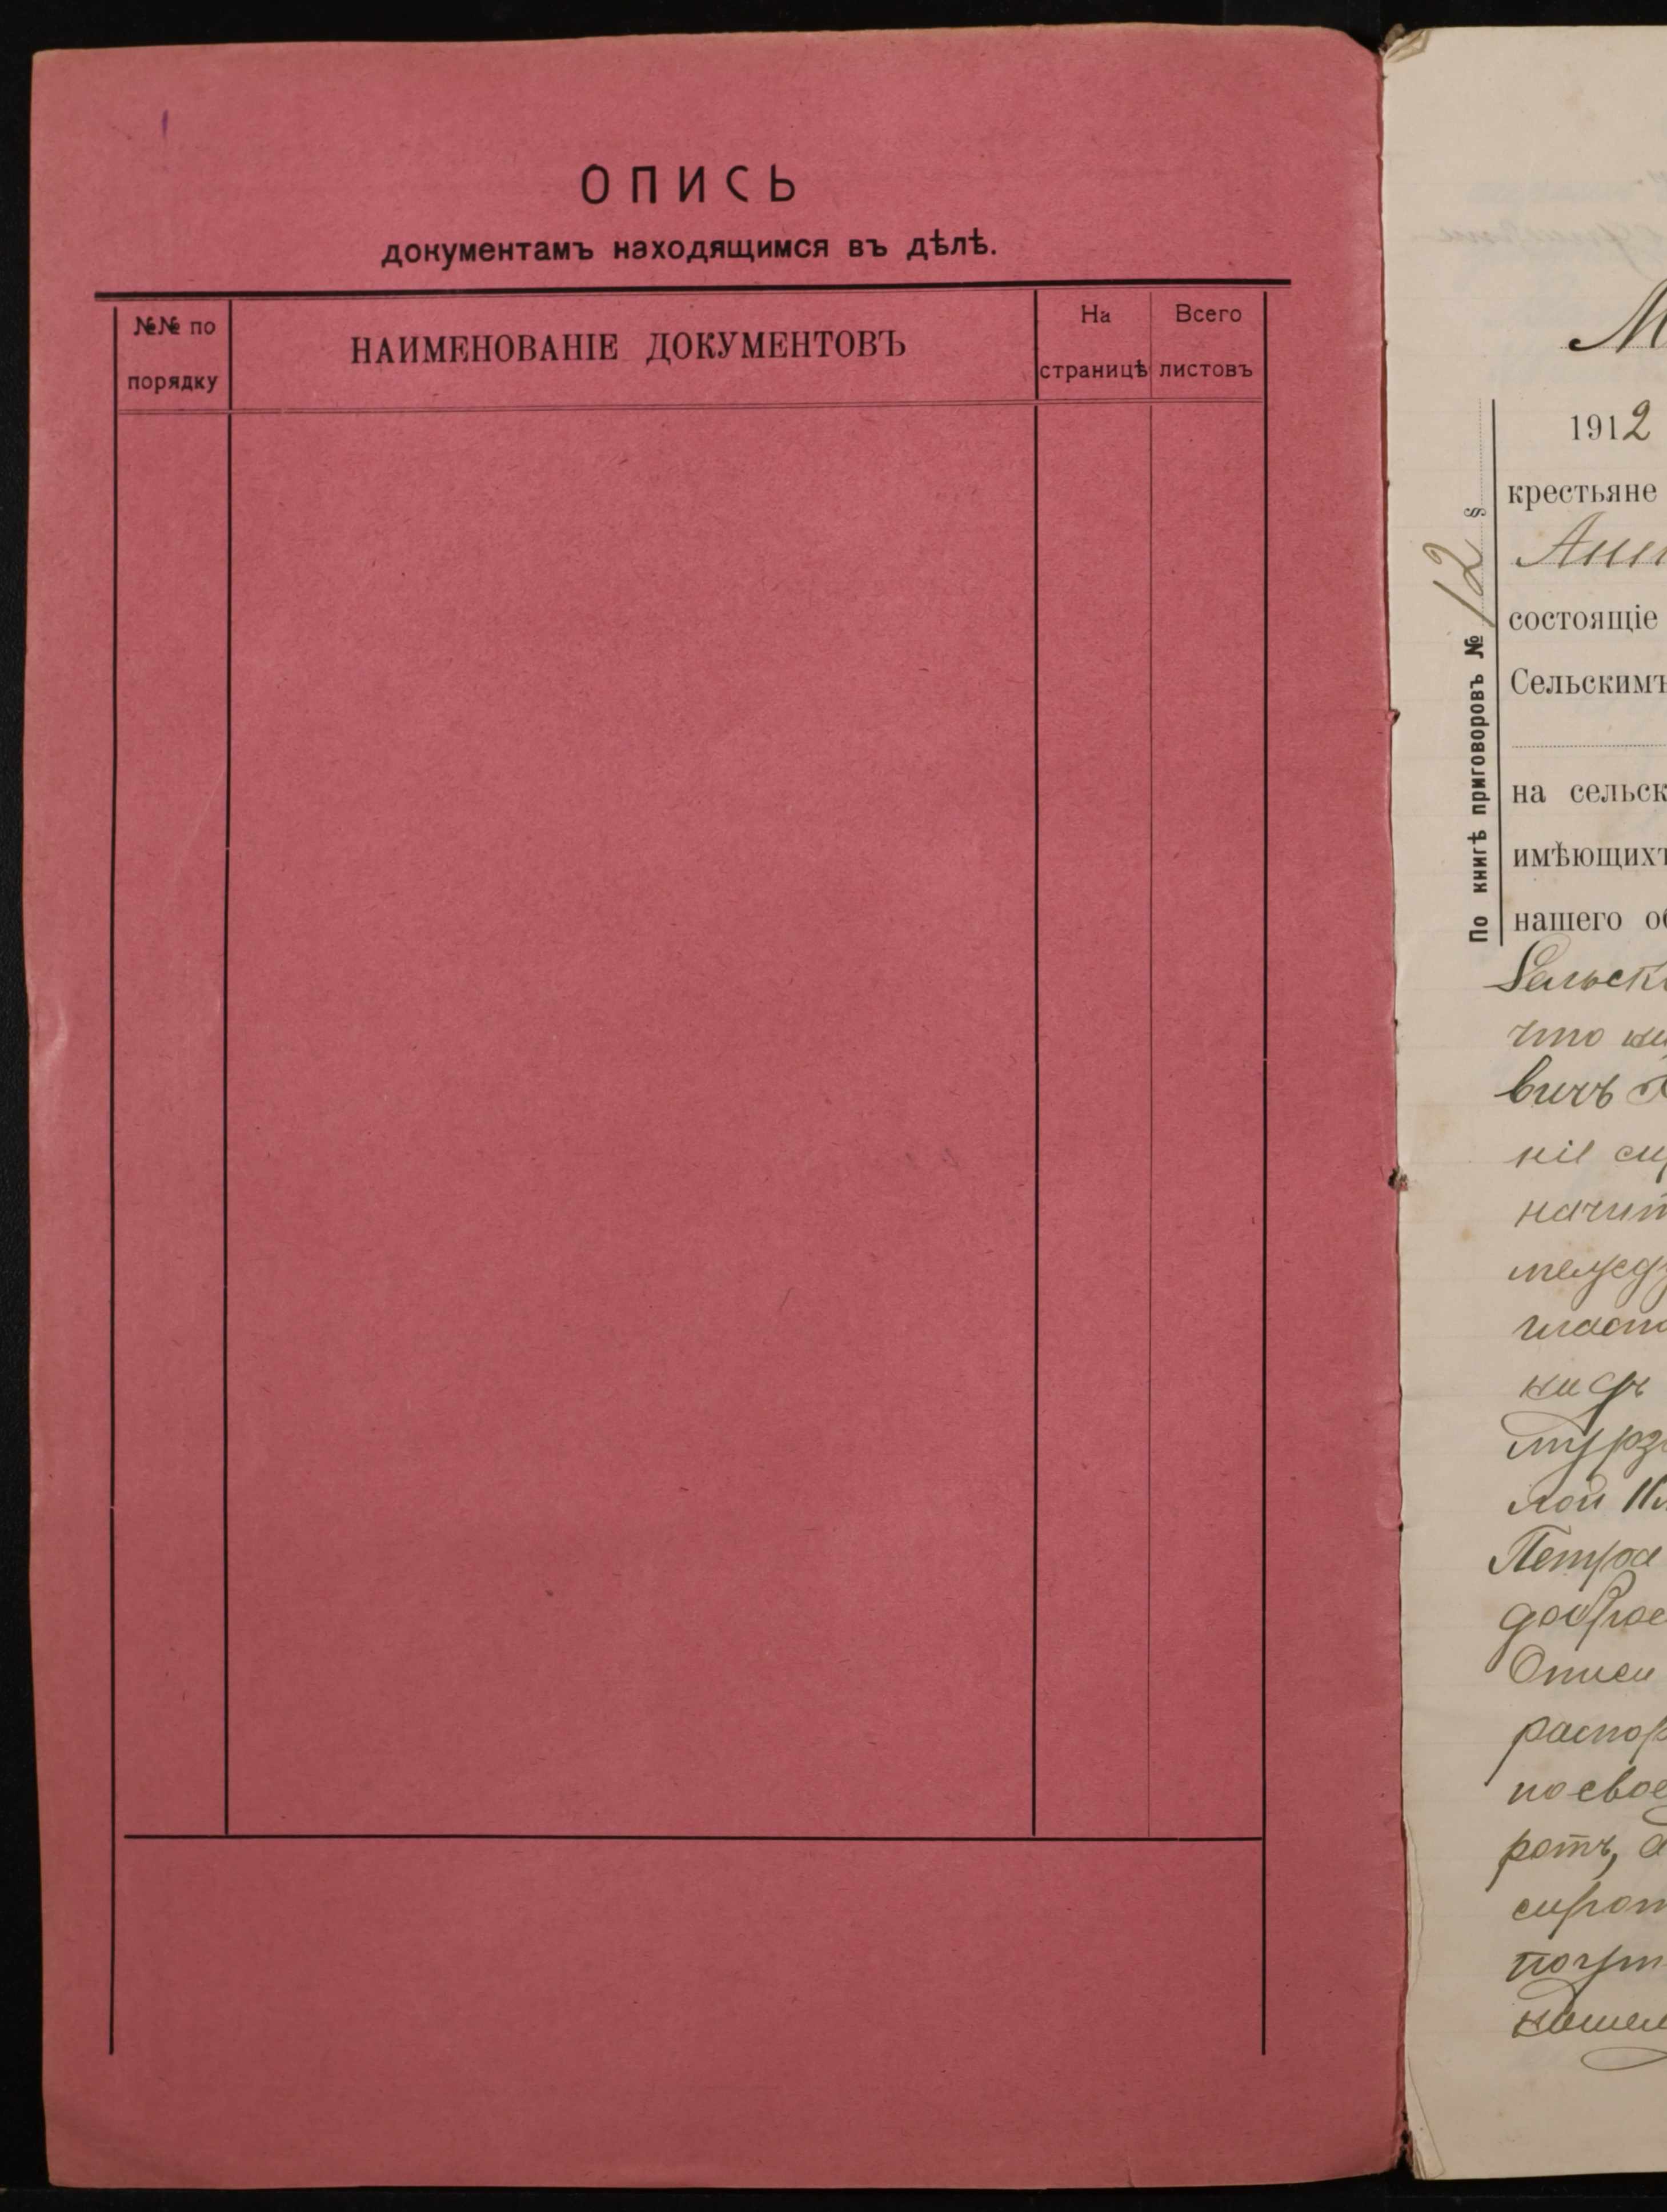 ОПИСЬ
документамъ находящимся въ дѣлѣ.
№№ по порядку
НАИМЕНОВАНІЕ ДОКУМЕНТОВЪ
На страницѣ
Всего листовъ
По книгѣ приговоровъ № 12 §
1912
крестьяне
состоящіе
Сельскимъ
на сельск
имѣющихъ
нашего об
Сельск
что
вичъ
ніе
Петра
Описи
распор
по свое
ротъ,
сирот